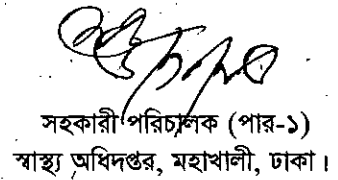 সহকারী পরিচালক (পার-১)
স্বাস্থ্য অধিদপ্তর, মহাখালী, ঢাকা।